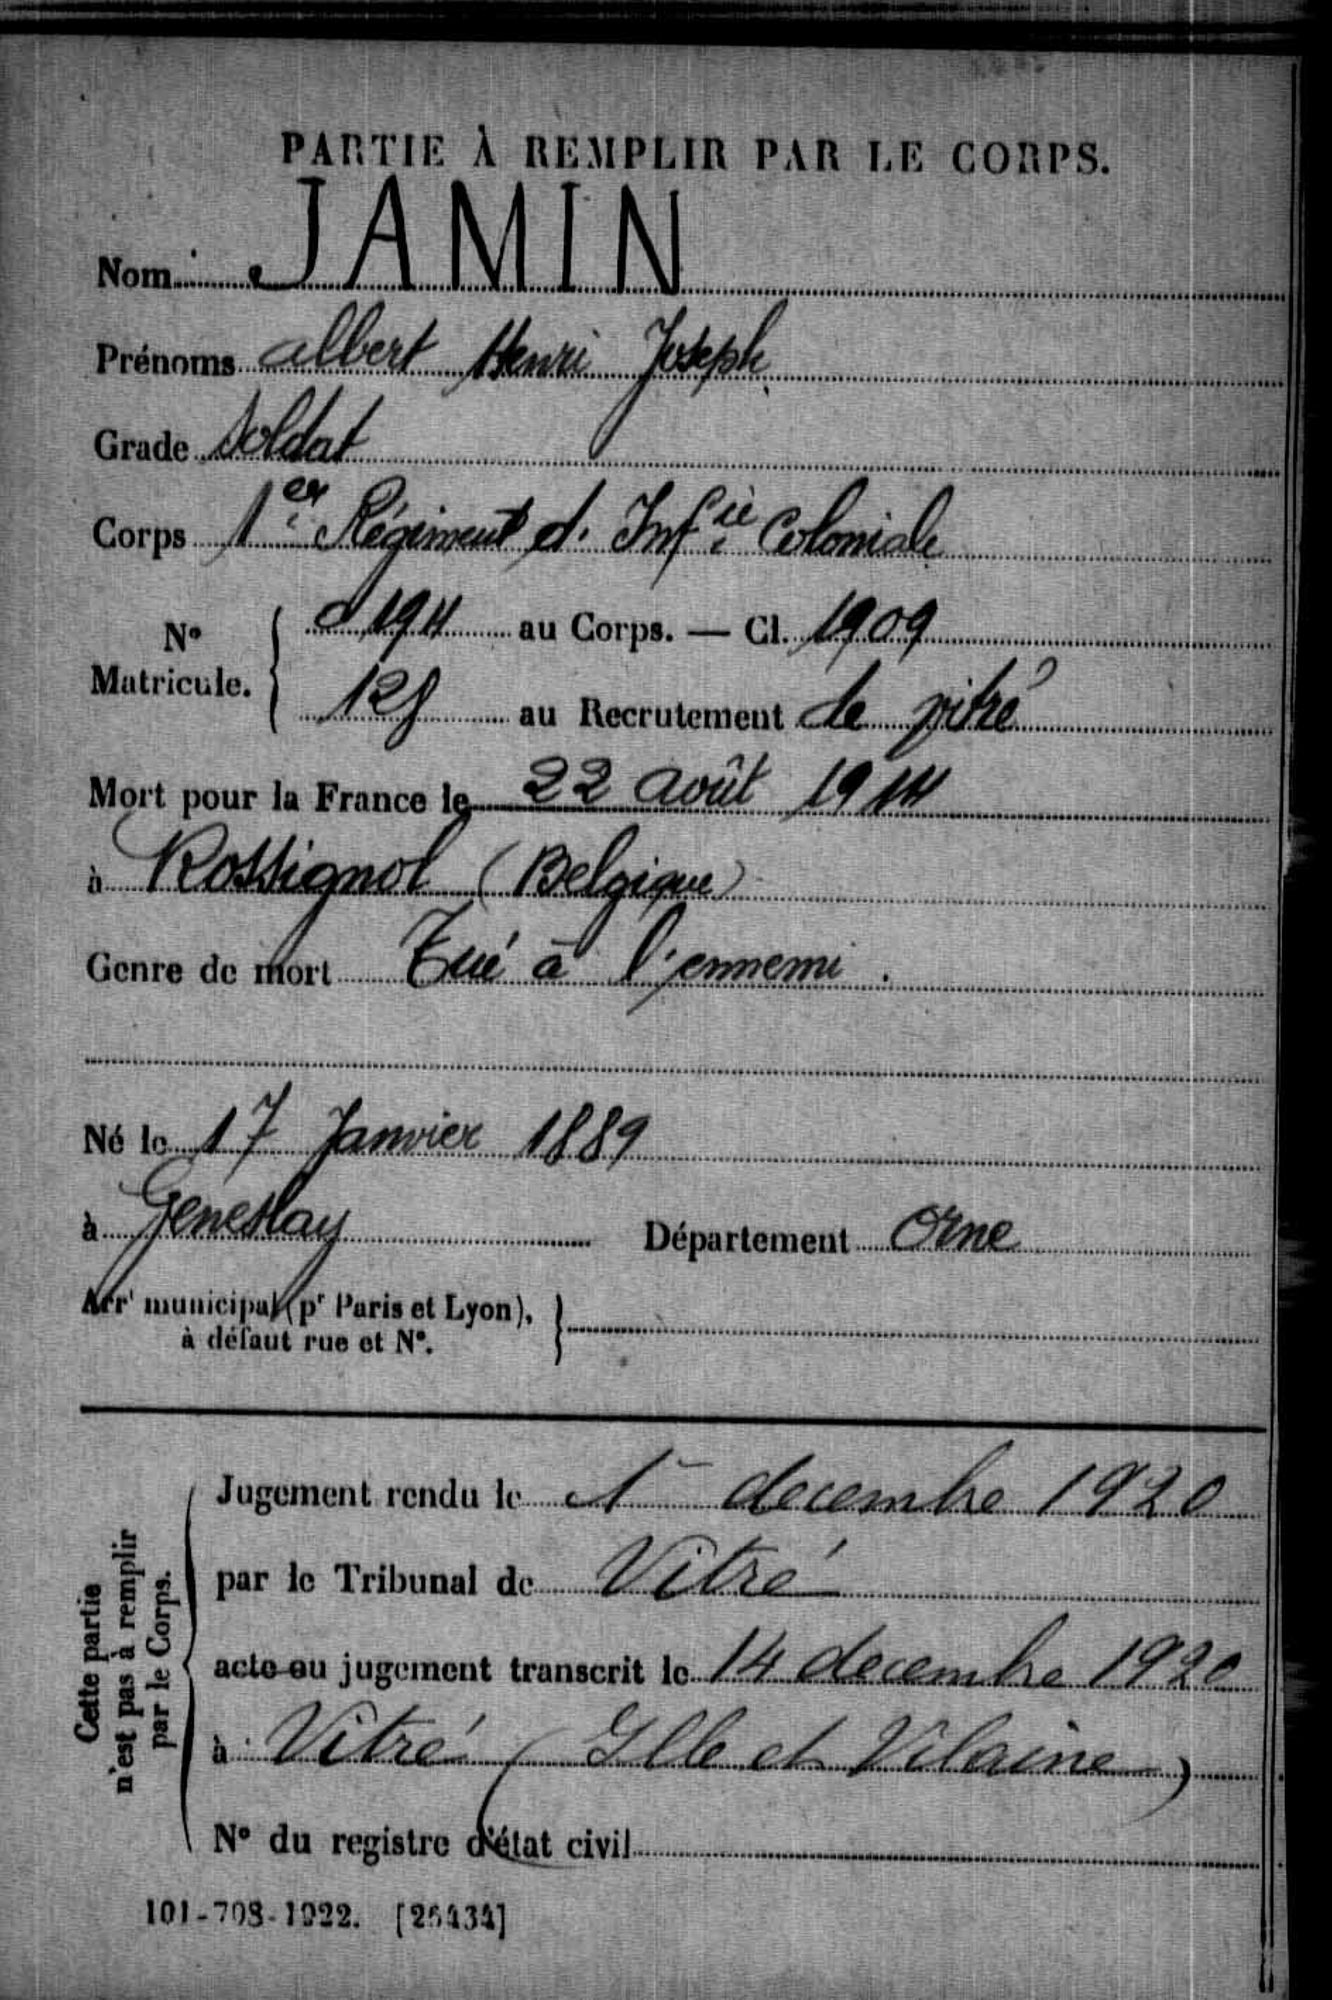 PARTIE À REMPLIR PAR LE CORPS.
Nom JAMIN
Prénoms Albert Henri Joseph
Grade Soldat
Corps 1er Régiment d. Infie Coloniale
au Corps. — Cl. 1909
N° Matricule.
128 au Recrutement de Vitré
Mort pour la France le 22 août 1914
à Rossignol (Belgique)
Genre de mort Tué à l'ennemi.
Né le 17 Janvier 1889
à Geneslay Département Orne
Arrt municipal (pr Paris et Lyon),
à défaut rue et N°.
Cette partie
n'est pas à remplir
par le Corps.
Jugement rendu le 1er decembre 1920
par le Tribunal de Vitré
acte ou jugement transcrit le 14 decembre 1920
à Vitré (Ille et Vilaine)
N° du registre d'état civil
101-708-1922. [26434]